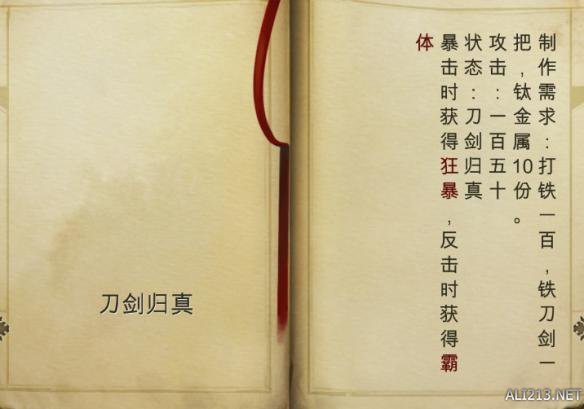 制作需求：打铁一百，铁刀剑一
把，钛金属10份。
攻击：一百五十
状态：刀剑归真
暴击时获得狂暴，反击时获得霸
体
刀剑归真
ALI213.NET